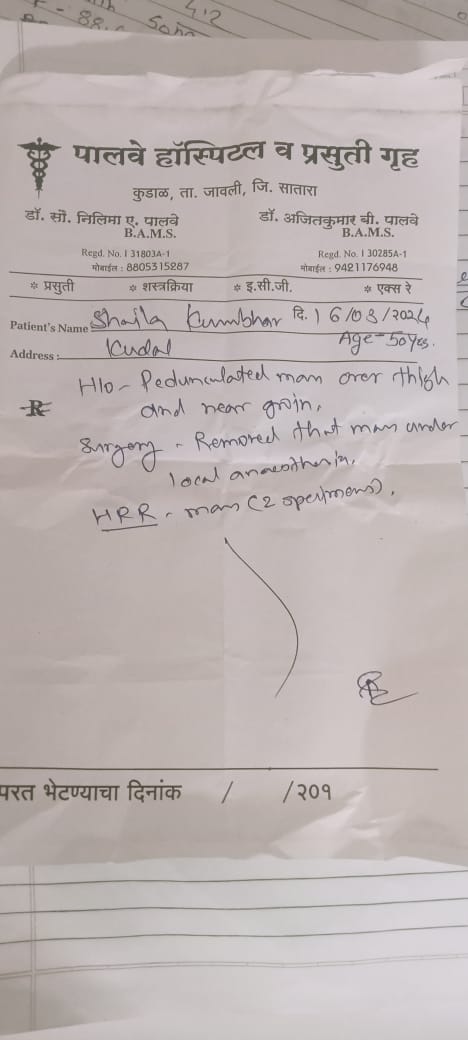 88.
50m
4.2
पालवे हॉस्पिटल व प्रसुती गृह
कुडाळ, ता. जावली, जि. सातारा
डॉ. सौ. निलिमा ए. पालवे
B.A.M.S.
डॉ. अजितकुमार बी. पालवे
B.A.M.S.
Regd. No. I 31803A-1
मोबाईल : 8805315287
Regd. No. I 30285A-1
मोबाईल : 9421176948
* प्रसुती * शस्त्रक्रिया * इ.सी.जी. * एक्स रे
Patient's Name Shaila Kumbhar दि. 16/03/2024
Address :- Kudal Age - 50 yrs.
R H/o - Pedunculated mass over thigh
and near groin.
Surgery - Removed that mass under
local anaesthesia.
HRR - mass (2 specimens).
परत भेटण्याचा दिनांक / /२०१